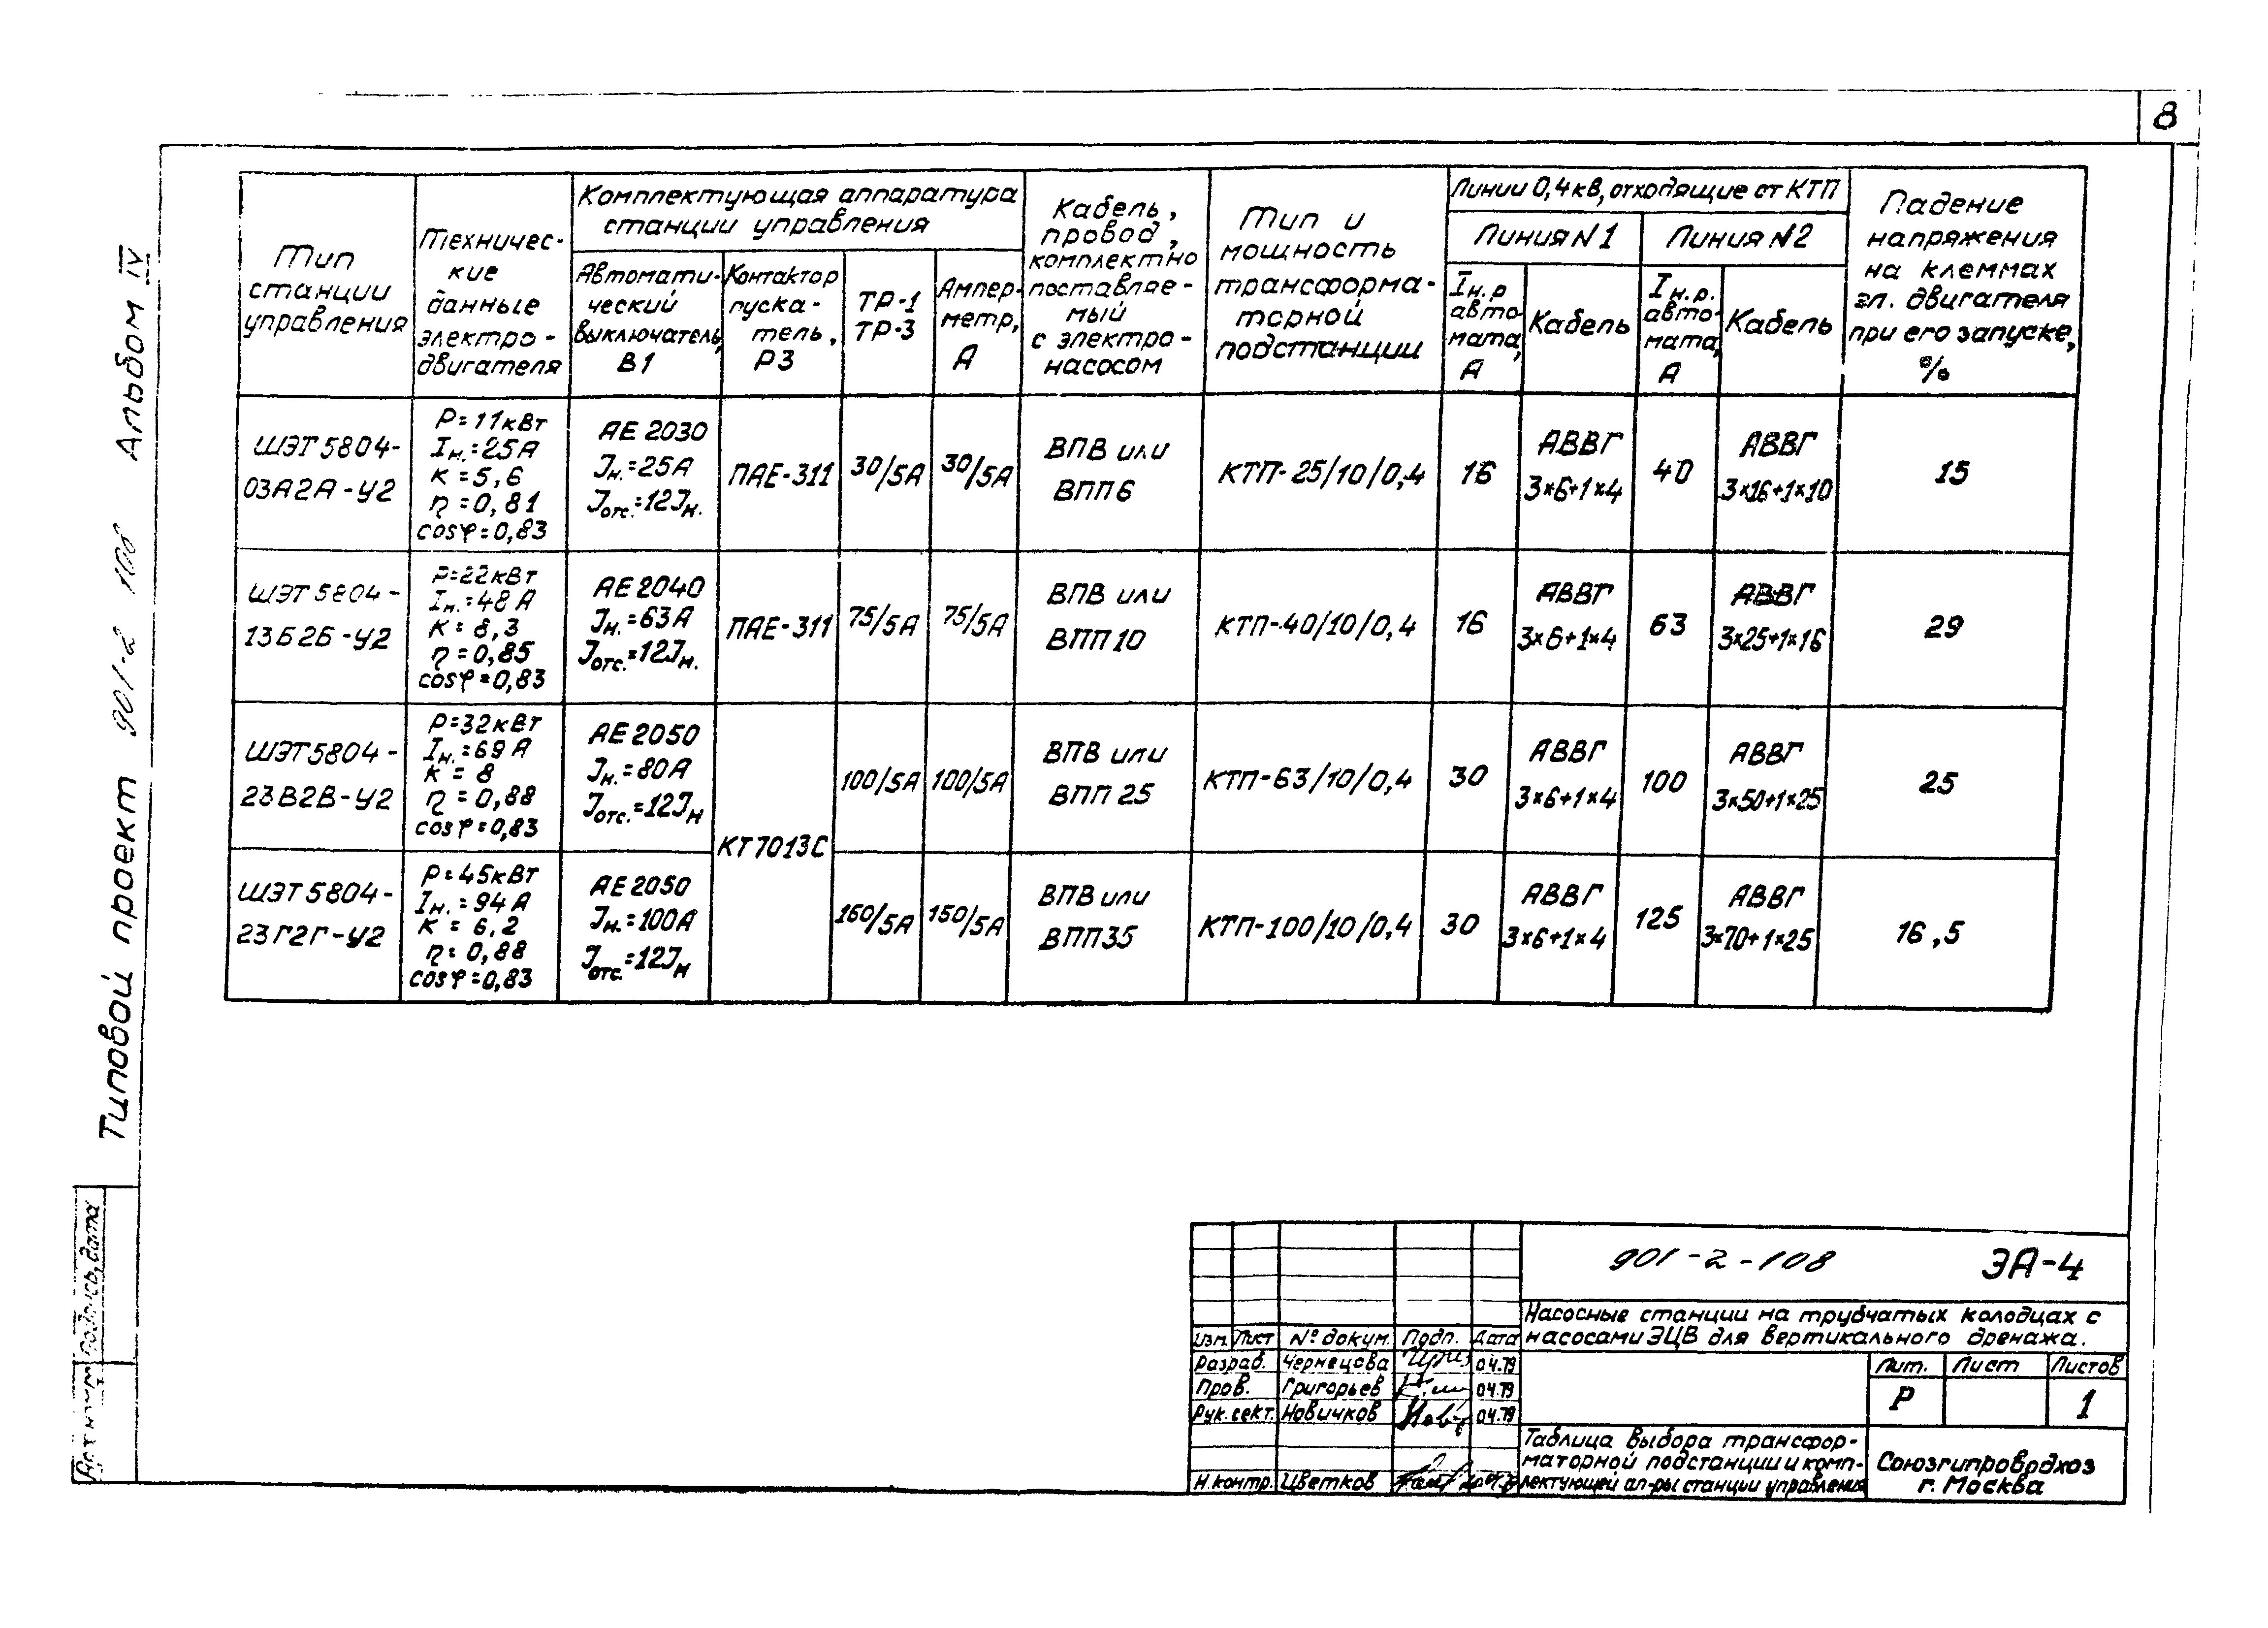 8
Типовой проект 901-2-108 Альбом IV
Подпись, дата
Тип
станции
управления
Техничес-
кие
данные
электро-
двигателя
Комплектующая аппаратура
станции управления
Автомати-
ческий
выключатель,
В1
Контактор
пуска-
тель,
РЗ
ТР-1
ТР-3
Ампер-
метр,
А
Кабель,
провод,
комплектно
поставляе-
мый
с электро-
насосом
Тип и
мощность
трансформа-
торной
подстанции
Линии 0,4кв, отходящие от КТП
Линия N1
Линия N2
Iн.р
авто-
мата,
А
Кабель
Iн.р.
авто-
мата,
А
Кабель
Падение
напряжения
на клеммах
эл. двигателя
при его запуске,
%
ШЭТ5804-
03А2А-У2
Р=11кВт
Iн.=25А
К=5,6
η=0,81
cosφ=0,83
АЕ2030
Iн.=25А
Iотс.=12Iн.
ПАЕ-311
30/5А
30/5А
ВПВ или
ВПП6
КТП-25/10/0,4
16
АВВГ
3×6+1×4
40
АВВГ
3×16+1×10
15
ШЭТ5804-
13Б2Б-У2
Р=22кВт
Iн.=48А
К=8,3
η=0,85
cosφ=0,83
АЕ2040
Iн.=63А
Iотс.=12Iн.
ПАЕ-311
75/5А
75/5А
ВПВ или
ВПП10
КТП-40/10/0,4
16
АВВГ
3×6+1×4
63
АВВГ
3×25+1×16
29
ШЭТ5804-
23В2В-У2
Р=32кВт
Iн.=69А
К=8
η=0,88
cosφ=0,83
АЕ2050
Iн.=80А
Iотс.=12Iн
КТ7013С
100/5А
100/5А
ВПВ или
ВПП25
КТП-63/10/0,4
30
АВВГ
3×6+1×4
100
АВВГ
3×50+1×25
25
ШЭТ5804-
23Г2Г-У2
Р=45кВт
Iн.=94А
К=6,2
η=0,88
cosφ=0,83
АЕ2050
Iн.=100А
Iотс.=12Iн
150/5А
150/5А
ВПВ или
ВПП35
КТП-100/10/0,4
30
АВВГ
3×6+1×4
125
АВВГ
3×70+1×25
16,5
901-2-108 ЭА-4
Насосные станции на трубчатых колодцах с
насосами ЭЦВ для вертикального дренажа.
Изм. Лист № докум. Подп. Дата
Разраб. Чернецова 04.79
Пров. Григорьев 04.79
Рук.сект. Новичков 04.79
Н.контр. Цветков
Лит. Лист Листов
Р 1
Таблица выбора трансфор-
маторной подстанции и комп-
лектующей ап-ры станции управления
Союзгипроврдхоз
г. Москва